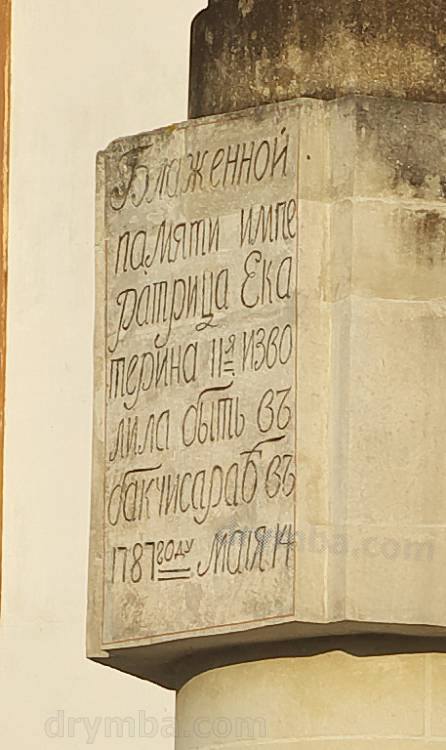 Блаженной
памяти импе
ратрица Ека
терина IIя изво
лила быть въ
бакчисараѣ въ
1787 году мая 14
drymba.com
drymba.com